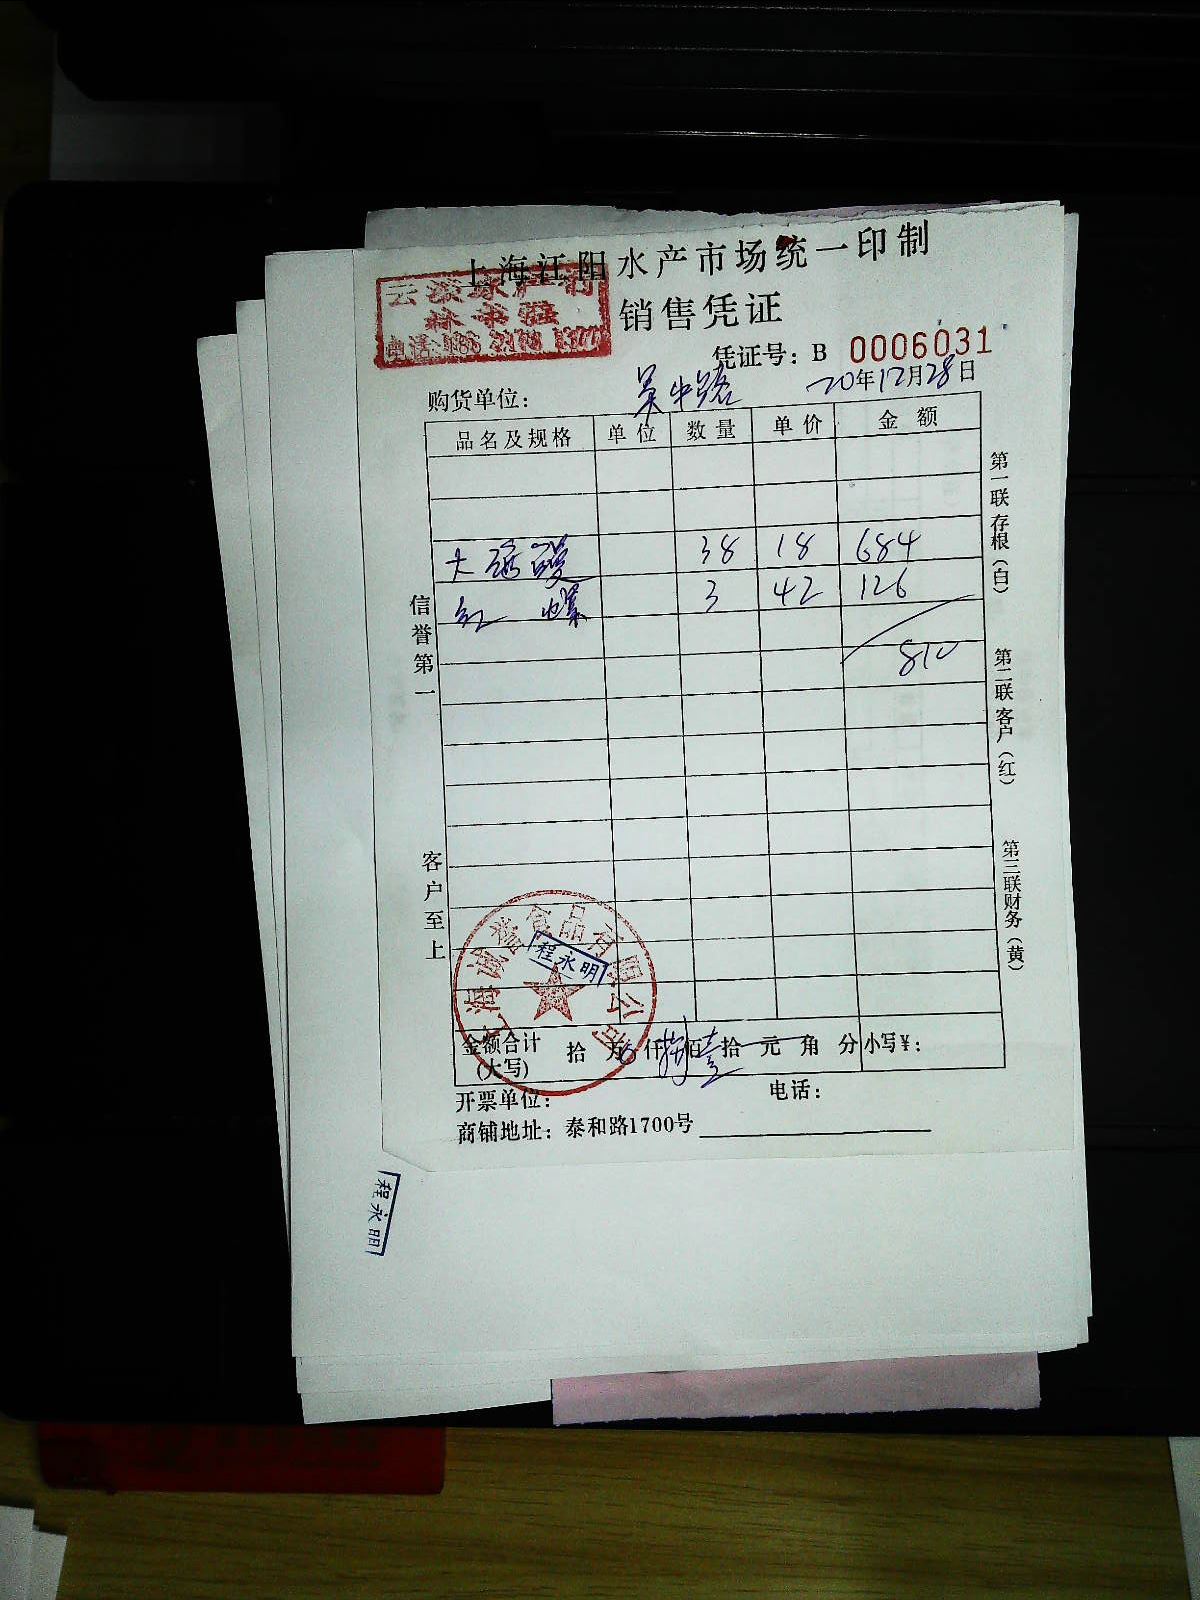 上海江阳水产市场统一印制
销售凭证
凭证号：B 0006031
购货单位： 吴中路 20年12月28日
品名及规格 单位 数量 单价 金额
大海 38 18 684
红螺 3 42 126
810
信誉第一
客户至上
第一联存根（白）
第二联客户（红）
第三联财务（黄）
上海诚誉食品有限公司
程永明
金额合计(大写) 拾 万 仟 捌 佰 壹 拾 元 角 分 小写¥：
开票单位： 电话：
商铺地址：泰和路1700号
程永明